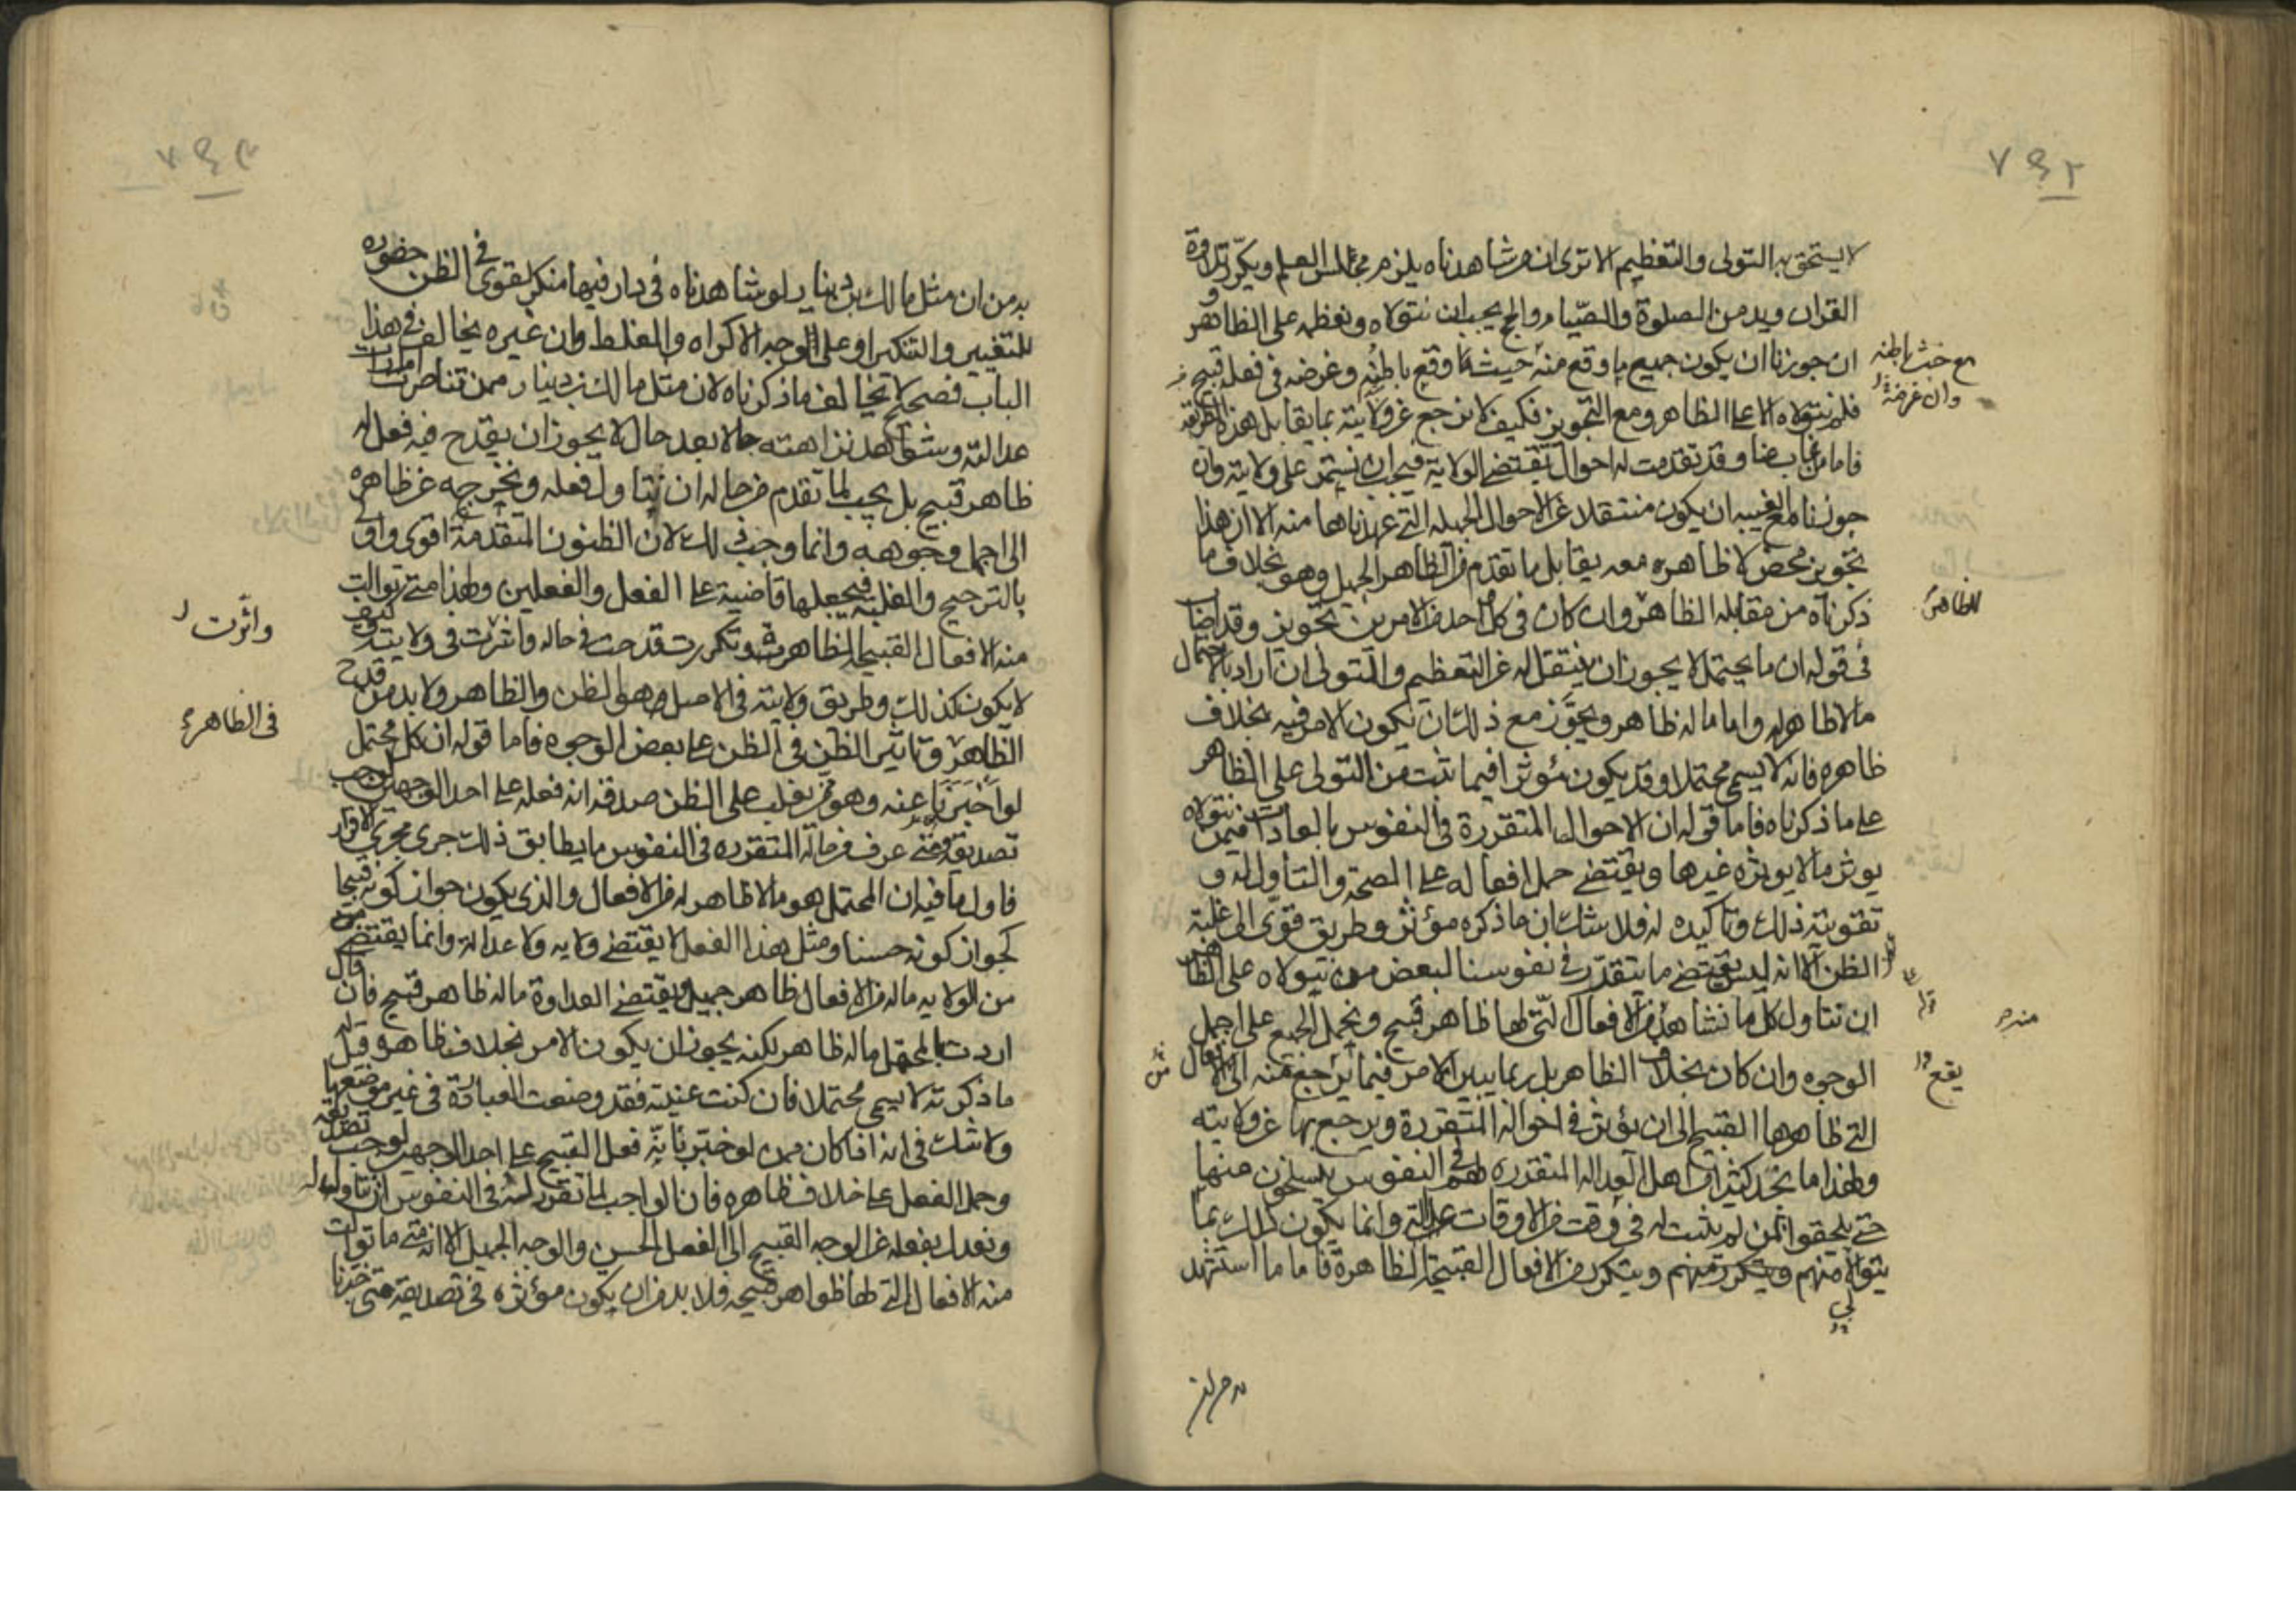 ٧٤٢
لا يستحق به التولى والتعظيم الا ترى ان من شاهدناه يلزم مجالس العلم ويكرر تلاوة
القران ويدمن الصلوة والصيام والحج يجب ان نتولاه ونعظمه على الظاهر و
ان جوزنا ان يكون جميع ما وقع منه حيث وقع باطنه وغرضه فى فعله قبيح
مع خبث باطنه
وان غرضه
فلم نتولاه الا على الظاهر ومع التجويز فكيف لا نرجع عن ولايته بما يقابل هذه الطريقة
فاما من غاب عنا وقد تقدمت له احوال تقتضى الولاية فيجب ان نستمر على ولايته وان
جوزنا مع الغيبه ان يكون منتقلا عن الاحوال الجميله التى عهدناها منه الا ان هذا
تجويز محض لا ظاهره معه يقابل ما تقدم من الظاهر الجميل وهو بخلاف ما
ذكرناه من مقابله الظاهر وان كان فى كل احد من الامرين تجويز وقد اصاب
للظاهر
فى قوله ان ما يحتمل لا يجوز ان ينتقل له عن التعظيم والتولى ان اراد بالاحتمال
ما لا ظاهر له واما ما له ظاهر ويجوز مع ذلك ان يكون الامر فيه بخلاف
ظاهره فانه لا يسمى محتملا وقد يكون مؤثرا فيما ثبت من التولى على الظاهر
على ما ذكرناه فاما قوله ان الاحوال المتقررة فى النفوس بالعادات فيمن نتولاه
يوثر ما لا يوثره غيرها ويقتضى حمل افعاله على الصحة والتاول له و
تقويته ذلك وتاكيده له فلا شك ان ما ذكره مؤثر وطريق قوى الى غلبة
الظن الا انه ليس يقتضى ما يتقرر فى نفوسنا لبعض من نتولاه على الظاهر
ان نتاول كل ما نشاهد من الافعال التى لها ظاهر قبيح ونحمل الجميع على اجمل
منه
الوجوه وان كان بخلاف الظاهر بل ربما يبين الامر فيما يرجع منه الى الافعال
يقع
التى ظاهرها القبيح الى ان يؤثر فى احواله المتقررة ويرجع بها عن ولايته
ولهذا ما نجد كثيرا من اهل العداله المتقرره لهم فى النفوس ينسلخون منها
حتى يلحقوا بمن لم يثبت له فى وقت من الاوقات عدالة وانما يكون ذلك بما
يتوالى منهم ويتكرر من الافعال القبيحة الظاهرة فاما ما استشهد
بدمن ان مثل مالك بن دينار لو شاهدناه فى دار فيها منكر لقوى فى الظن حضوره
للتغيير والتنكير او على الوجه الاكراه والغلط وان غيره يخالف فى هذا
الباب فصحيح لا يخالف ما ذكرناه لان مثل مالك بن دينار ممن تناصرت امارات
عدالته وشواهد نزاهته حالا بعد حال لا يجوز ان يقدح فيه فعل له
ظاهر قبيح بل يجب لما تقدم من حاله ان نتاول فعله ونخرجه عن ظاهره
الى اجمل وجوهه وانما وجب ذلك لان الظنون المتقدمة اقوى واولى
بالترجيح والغلبة فيجعلها قاضية على الفعل والفعلين ولهذا متى توالت
منه الافعال القبيحة الظاهرة وتكررت قدحت فى حاله واثرت فى ولايته كيف
واثرت
لا يكون كذلك وطريق ولايته فى الاصل هو الظن والظاهر ولا بد من قدح
الظاهر وتاثير الظن فى الظن على بعض الوجوه فاما قوله ان كل محتمل
فى الظاهره
لو اخبرنا عنه وهو ممن يغلب على الظن صدقه انه فعله على احد الوجهين لوجب
تصديقه فمتى عرف من حاله المتقرره فى النفوس ما يطابق ذلك جرى مجرى الاقرار
فاول ما فيه ان المحتمل هو ما لا ظاهر له من الافعال والذى يكون جواز كونه قبيحا
كجواز كونه حسنا ومثل هذا الفعل لا يقتضى ولايه ولا عدالة وانما يقتضى
من الولايه ما له من الافعال ظاهر جميل ويقتضى العداوة ما له ظاهر قبيح فان قال
اردت بالمحتمل ما له ظاهر لكنه يجوز ان يكون الامر بخلاف ظاهره قيل له
ما ذكرته لا يسمى محتملا فان كنت عنيته فقد وضعت العبارة فى غير موضعها
ولا شك فى انه اذا كان ممن لو خبرنا بانه فعل القبيح على احد الوجهين لوجب تصديقه
وحمل الفعل على خلاف ظاهره فان الواجب لما تقرر له فى النفوس ان نتاول له
ونعدل بفعله عن الوجه القبيح الى الفعل الحسن والوجه الجميل الا انه متى ما توالت
منه الافعال التى لها ظواهر قبيحه فلا بد من ان يكون مؤثره فى تصديقه متى خبرنا